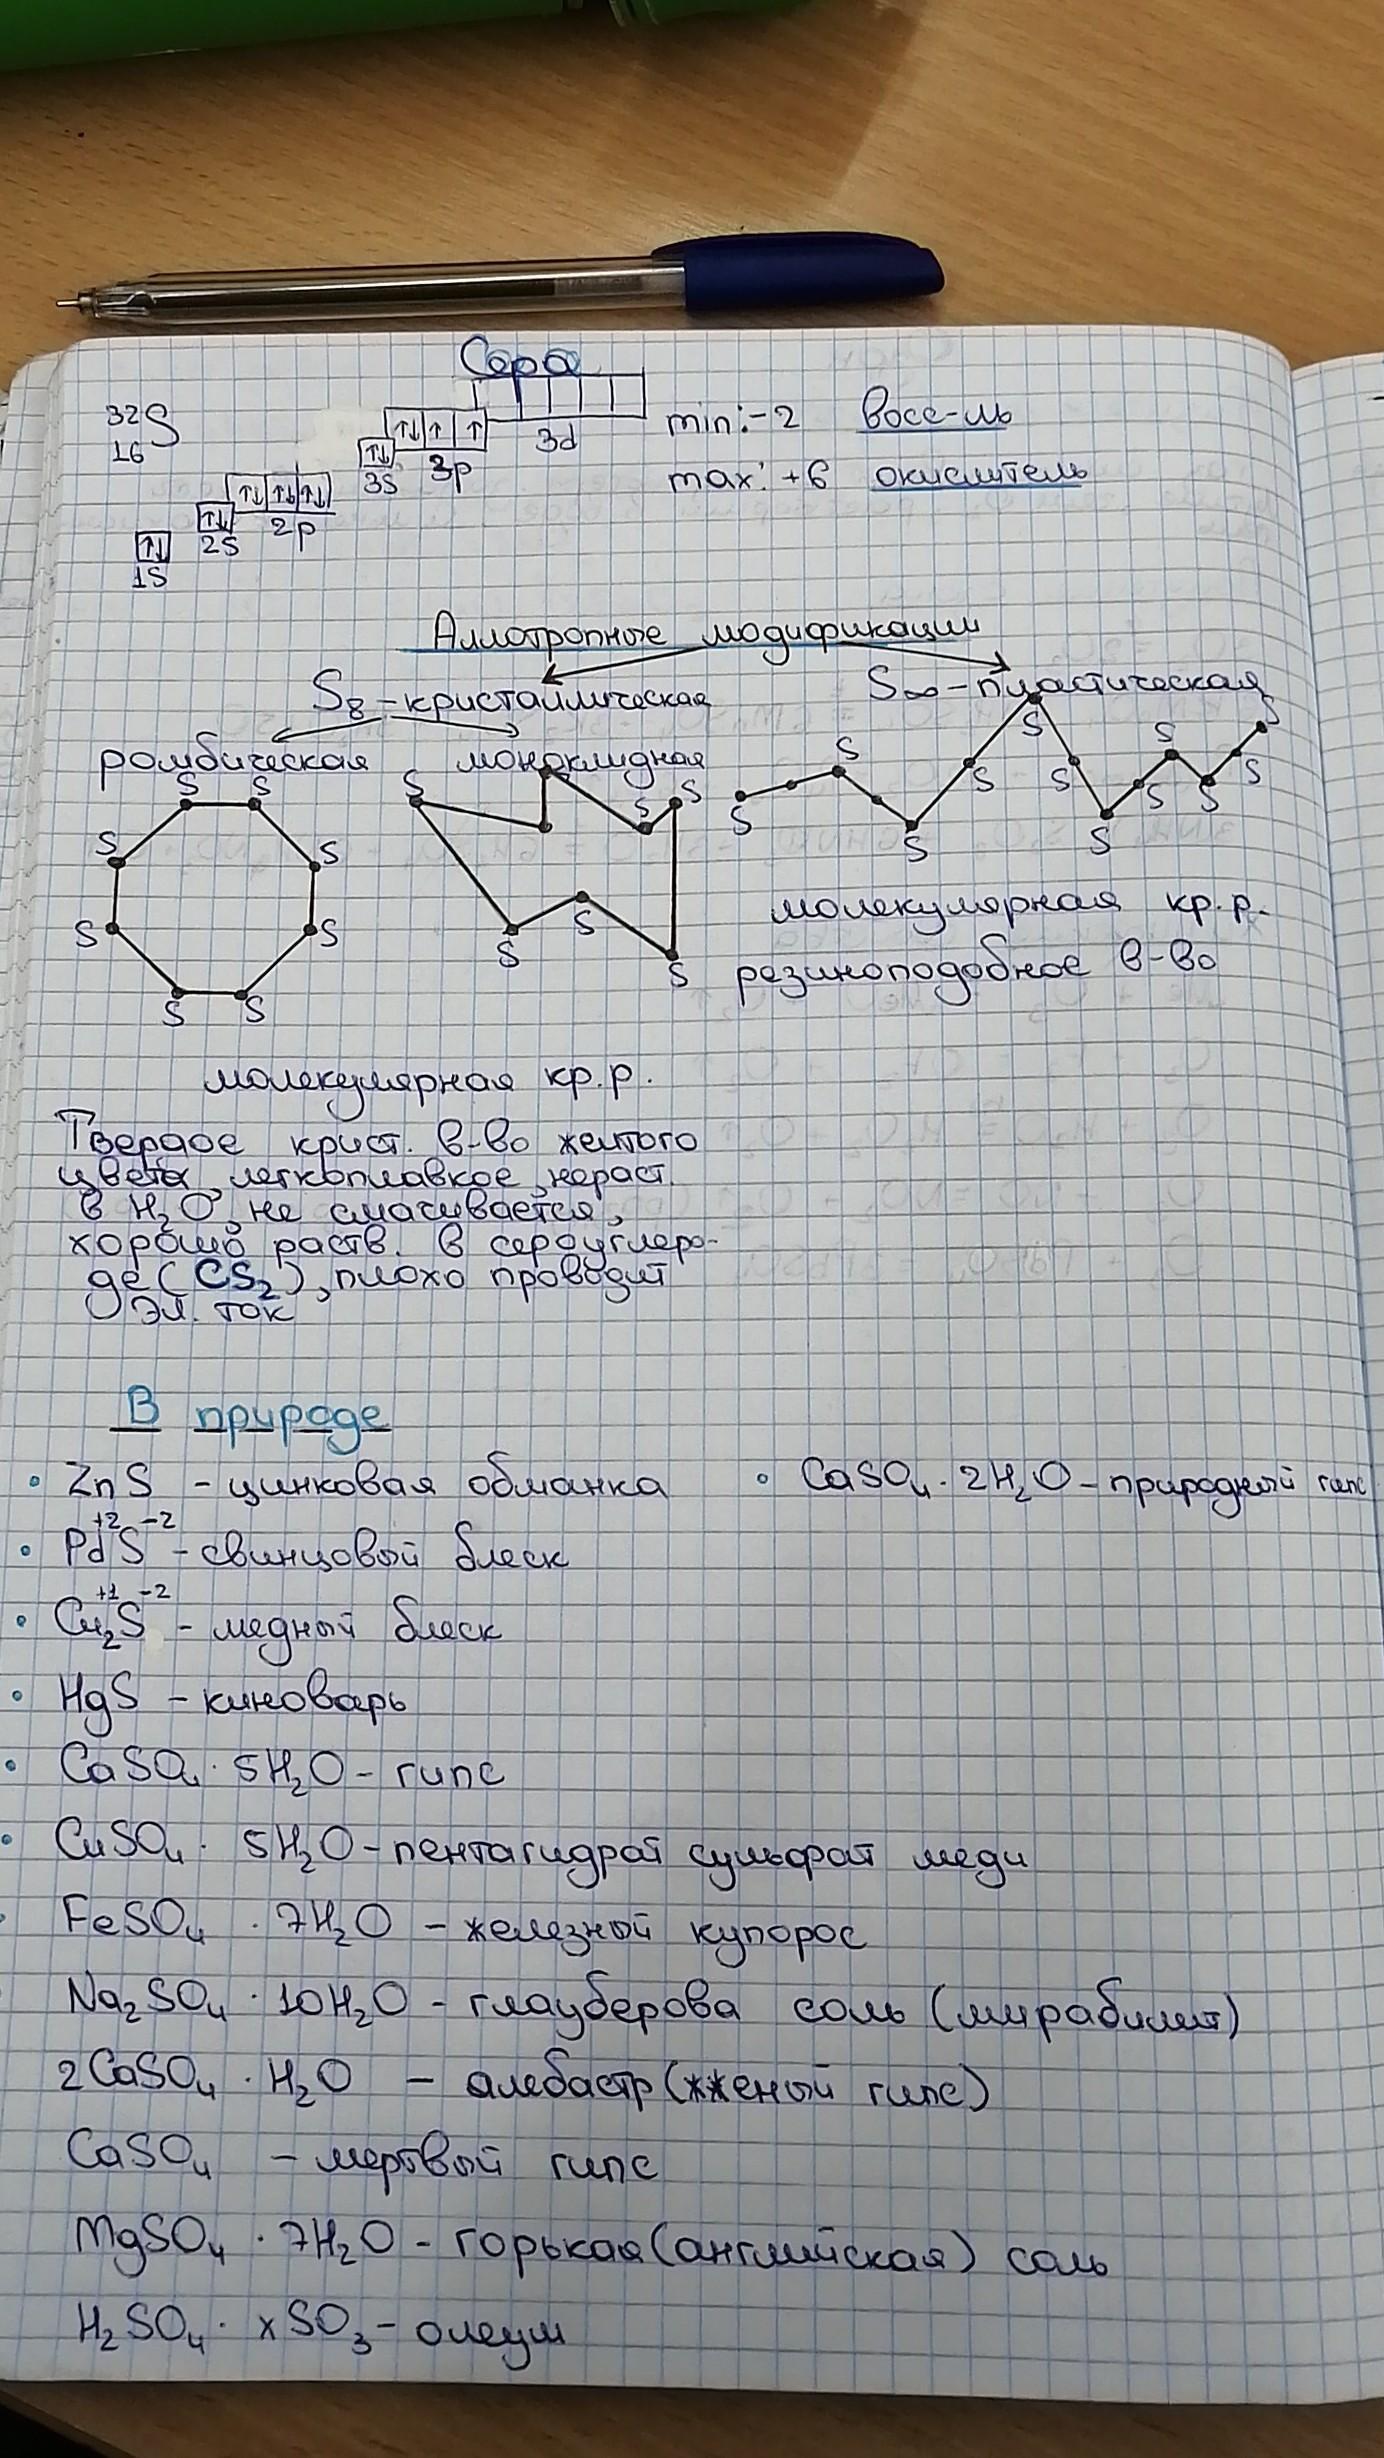 Сера
32
16 S
1s
2s
2p
3s
3p
3d
min: -2 восс-ль
max: +6 окислитель
Аллотропные модификации
S8 - кристаллическая
S∞ - пластическая
ромбическая
моноклидная
S S S S S S S S
S S S S S S
S S S S S S S S S S S
молекулярная кр.р.
резиноподобное в-во
молекулярная кр.р.
Твердое крист. в-во желтого
цвета, легкоплавкое, нераст.
в H2O, не смачивается,
хорошо раств. в сероуглеро-
де (CS2), плохо проводит
эл. ток
В природе
• ZnS - цинковая обманка
• CaSO4 · 2H2O - природный гипс
+2 -2
• PdS - свинцовый блеск
+1 -2
• Cu2S - медный блеск
• HgS - киноварь
• CaSO4 · 5H2O - гипс
• CuSO4 · 5H2O - пентагидрат сульфат меди
FeSO4 · 7H2O - железный купорос
Na2SO4 · 10H2O - глауберова соль (мирабилит)
2CaSO4 · H2O - алебастр (жженый гипс)
CaSO4 - мертвый гипс
MgSO4 · 7H2O - горькая (английская) соль
H2SO4 · xSO3 - олеум